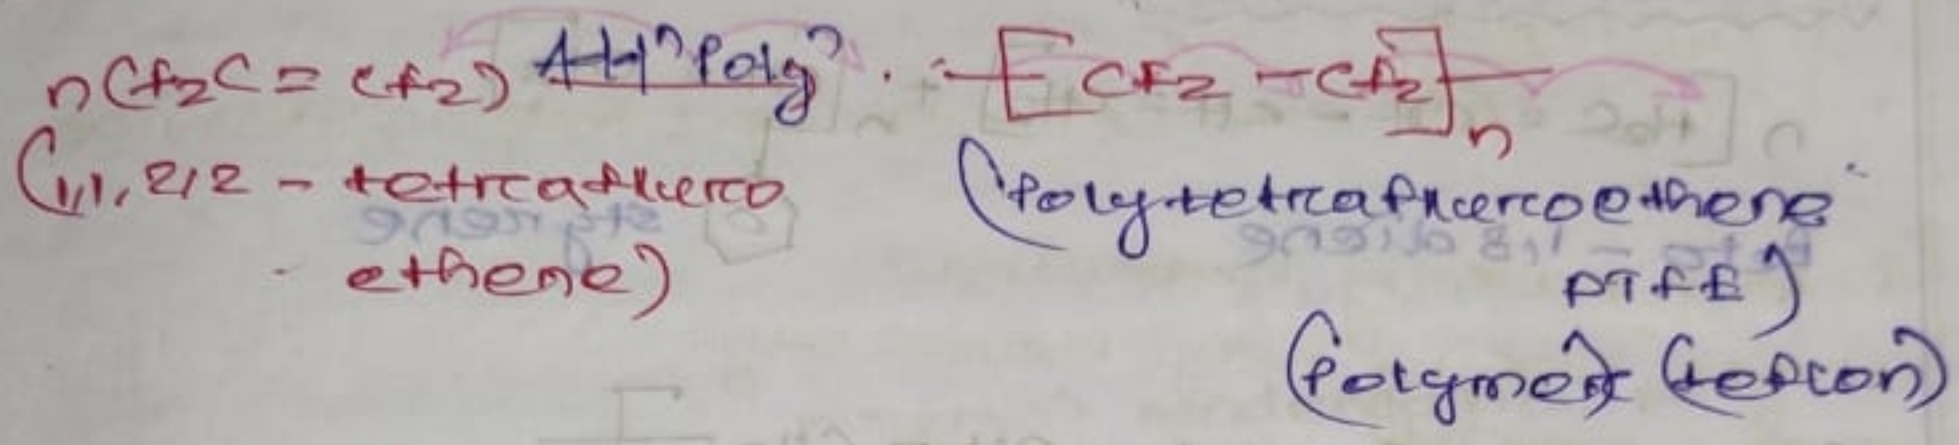 n(F₂C = CF₂) Addⁿ Polyⁿ. -[CF₂ - CF₂]-n
(1,1,2,2 - tetrafluoro (Polytetrafluoroethene
- ethene) PTFE)
(Polymer) (teflon)